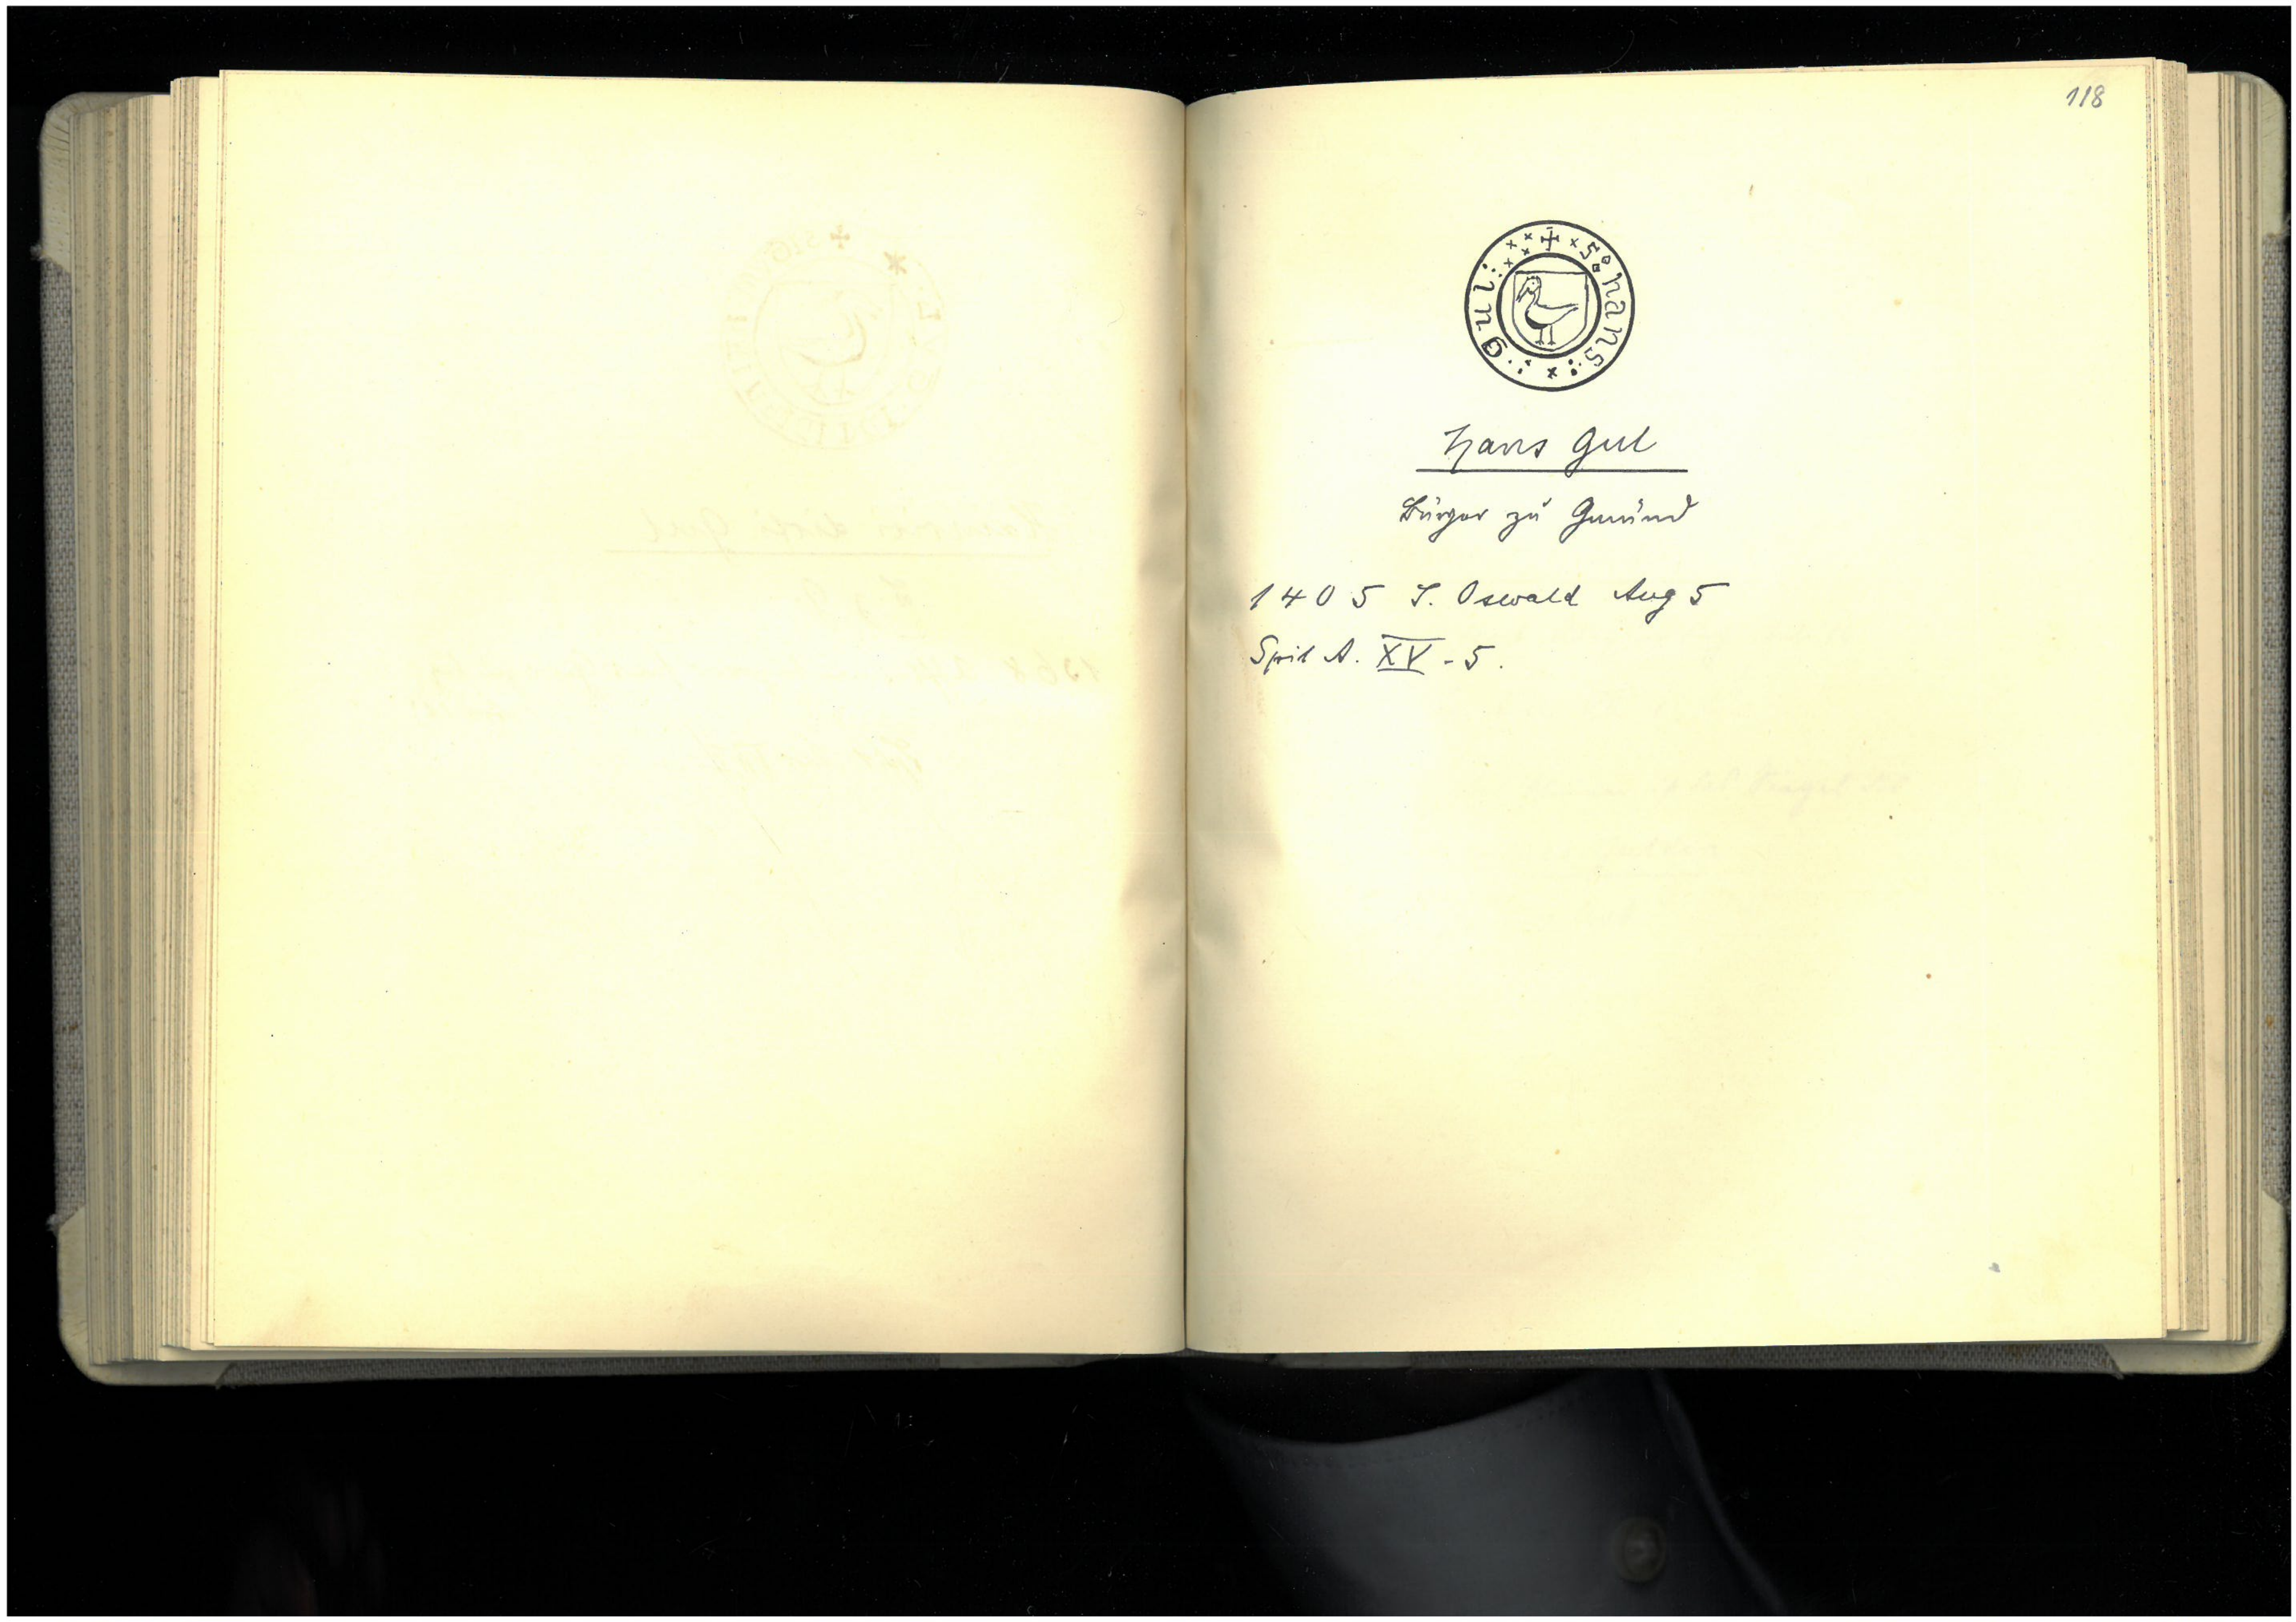 118
+ S. hans gul
Hans Gul
Bürger zu Gmünd
1405 S. Oswald Aug 5
Spit A. XV - 5.